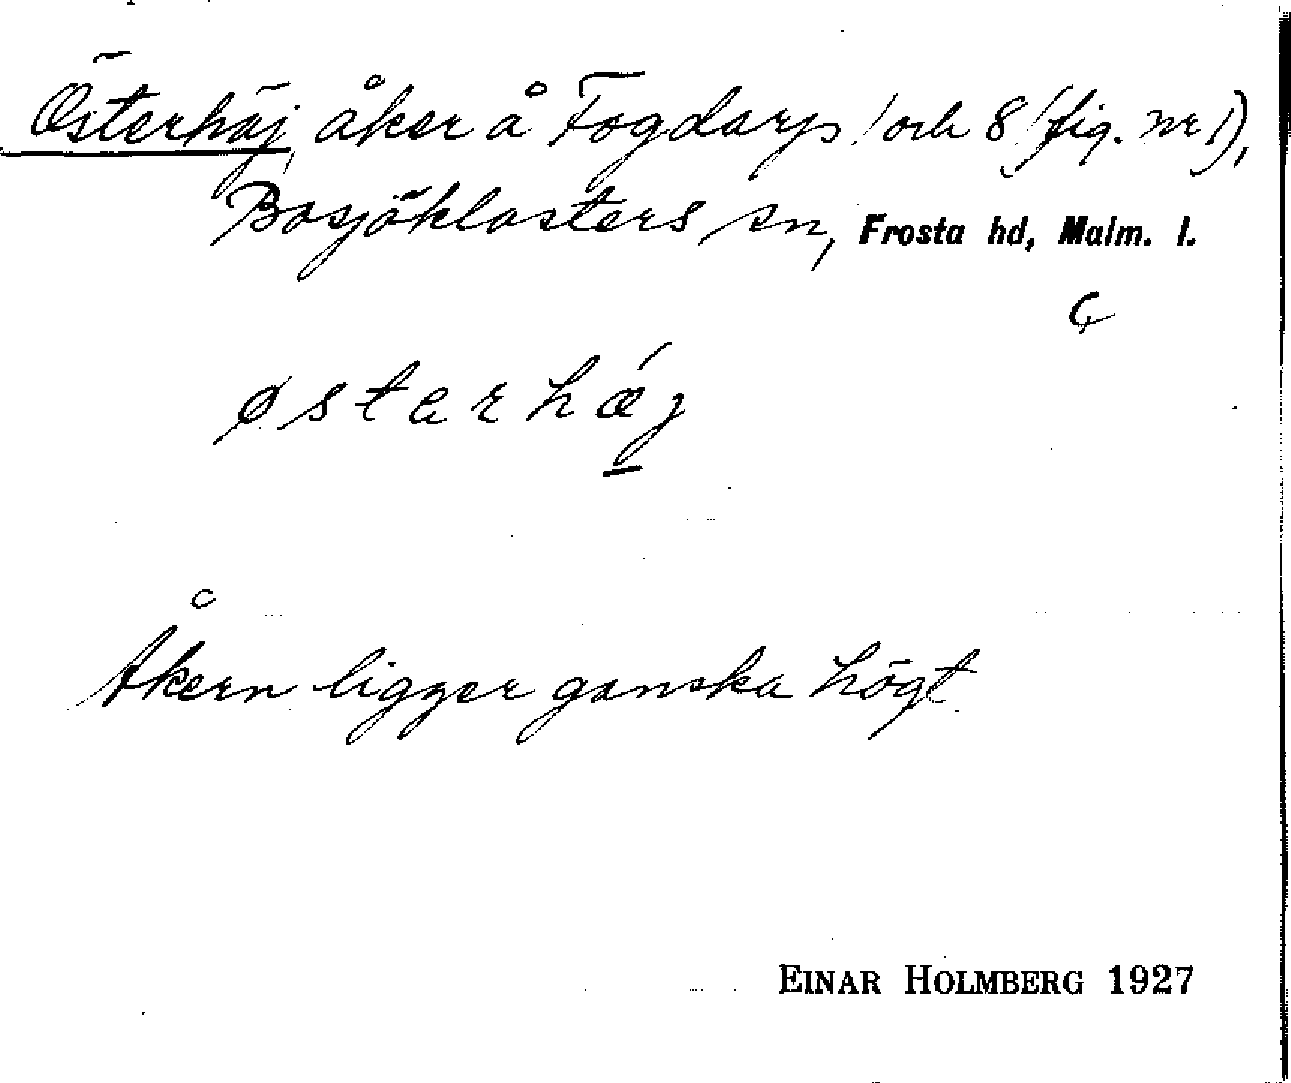 Österhöj, åker å Fogdarp 1 och 8 (fig. nr 1),
Bosjöklosters sn, Frosta hd, Malm. l.
østarhǿj
Åkern ligger ganska högt.
EINAR HOLMBERG 1927